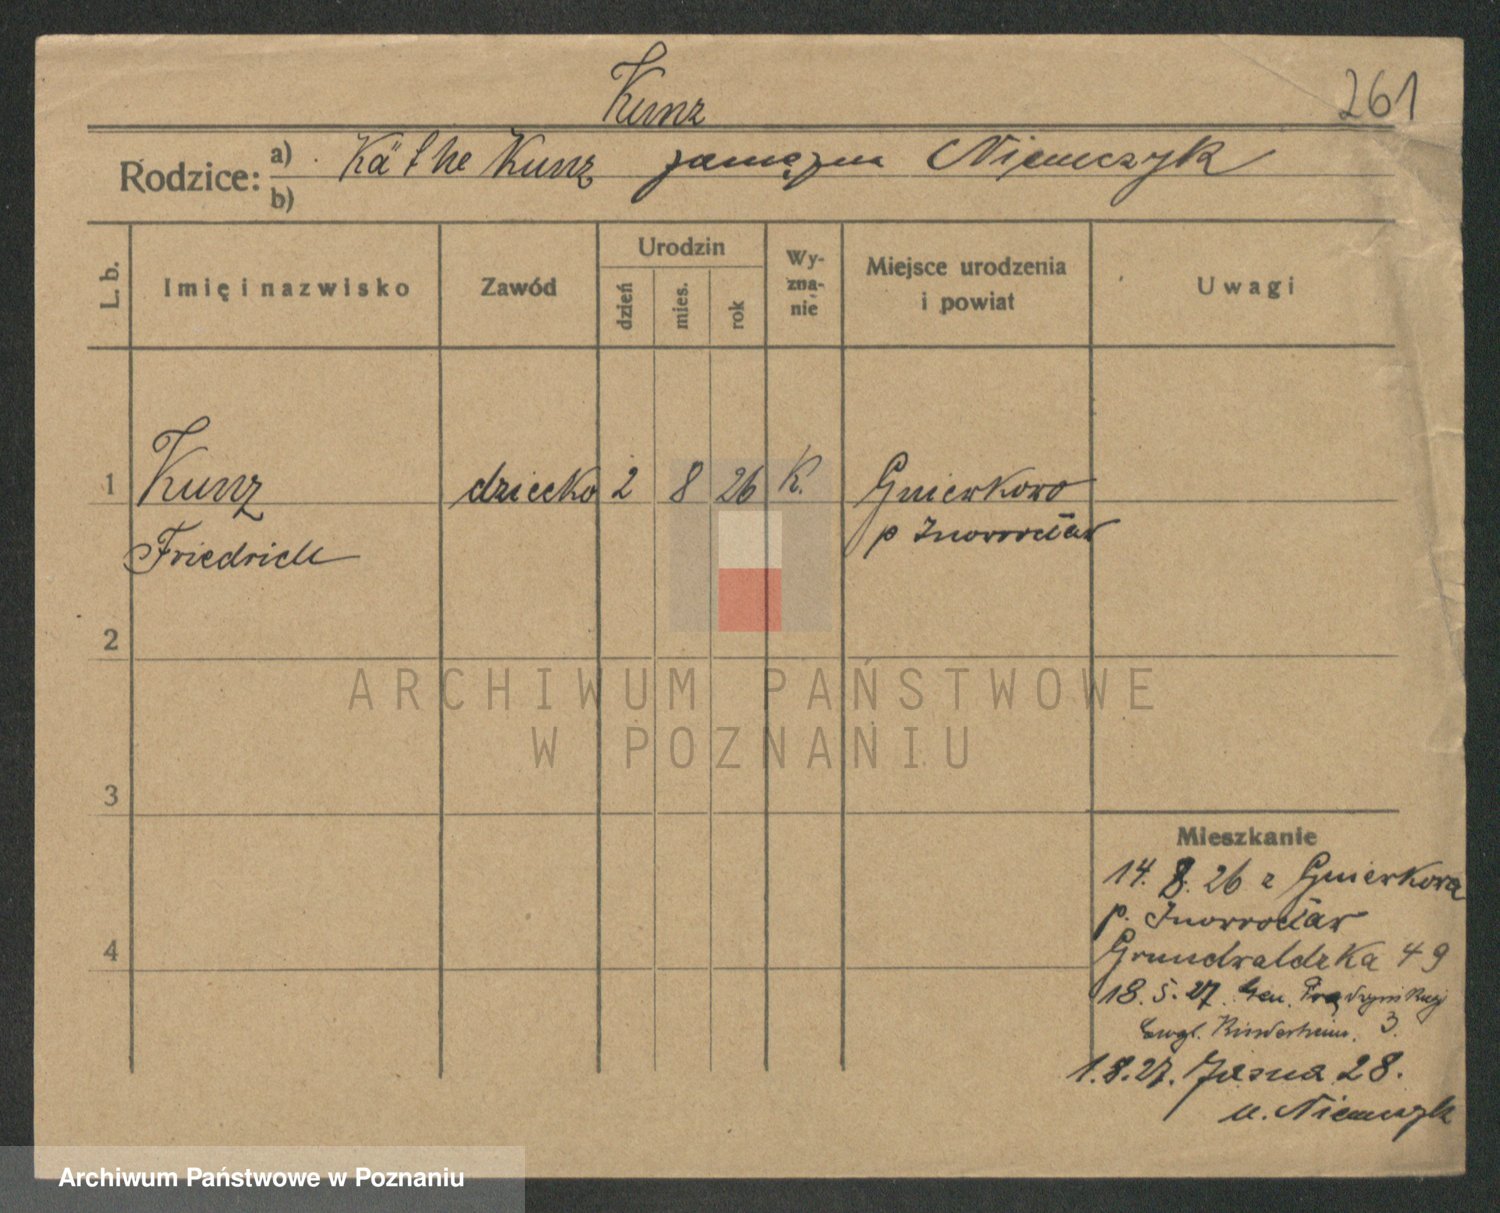 Kunz
261
Rodzice: a) Käthe Kunz zamężna Niemczyk
b)
L. b.
Imię i nazwisko
Zawód
Urodzin
dzień
mies.
rok
Wy-
zna-
nie
Miejsce urodzenia
i powiat
Uwagi
1 Kunz dziecko 2 8 26 K. Gniewkowo
Friedrich p Inowrocław
2
ARCHIWUM PAŃSTWOWE
W POZNANIU
3
Mieszkanie
14. 8. 26 z Gniewkowa
p. Inowrocław
4
Grunwaldzka 49
18. 5. 27. Gen. Prądzyńskiego
Ewgl. Kinderheim. 3.
1. 8. 27. Jasna 28.
u. Niemczyk
Archiwum Państwowe w Poznaniu